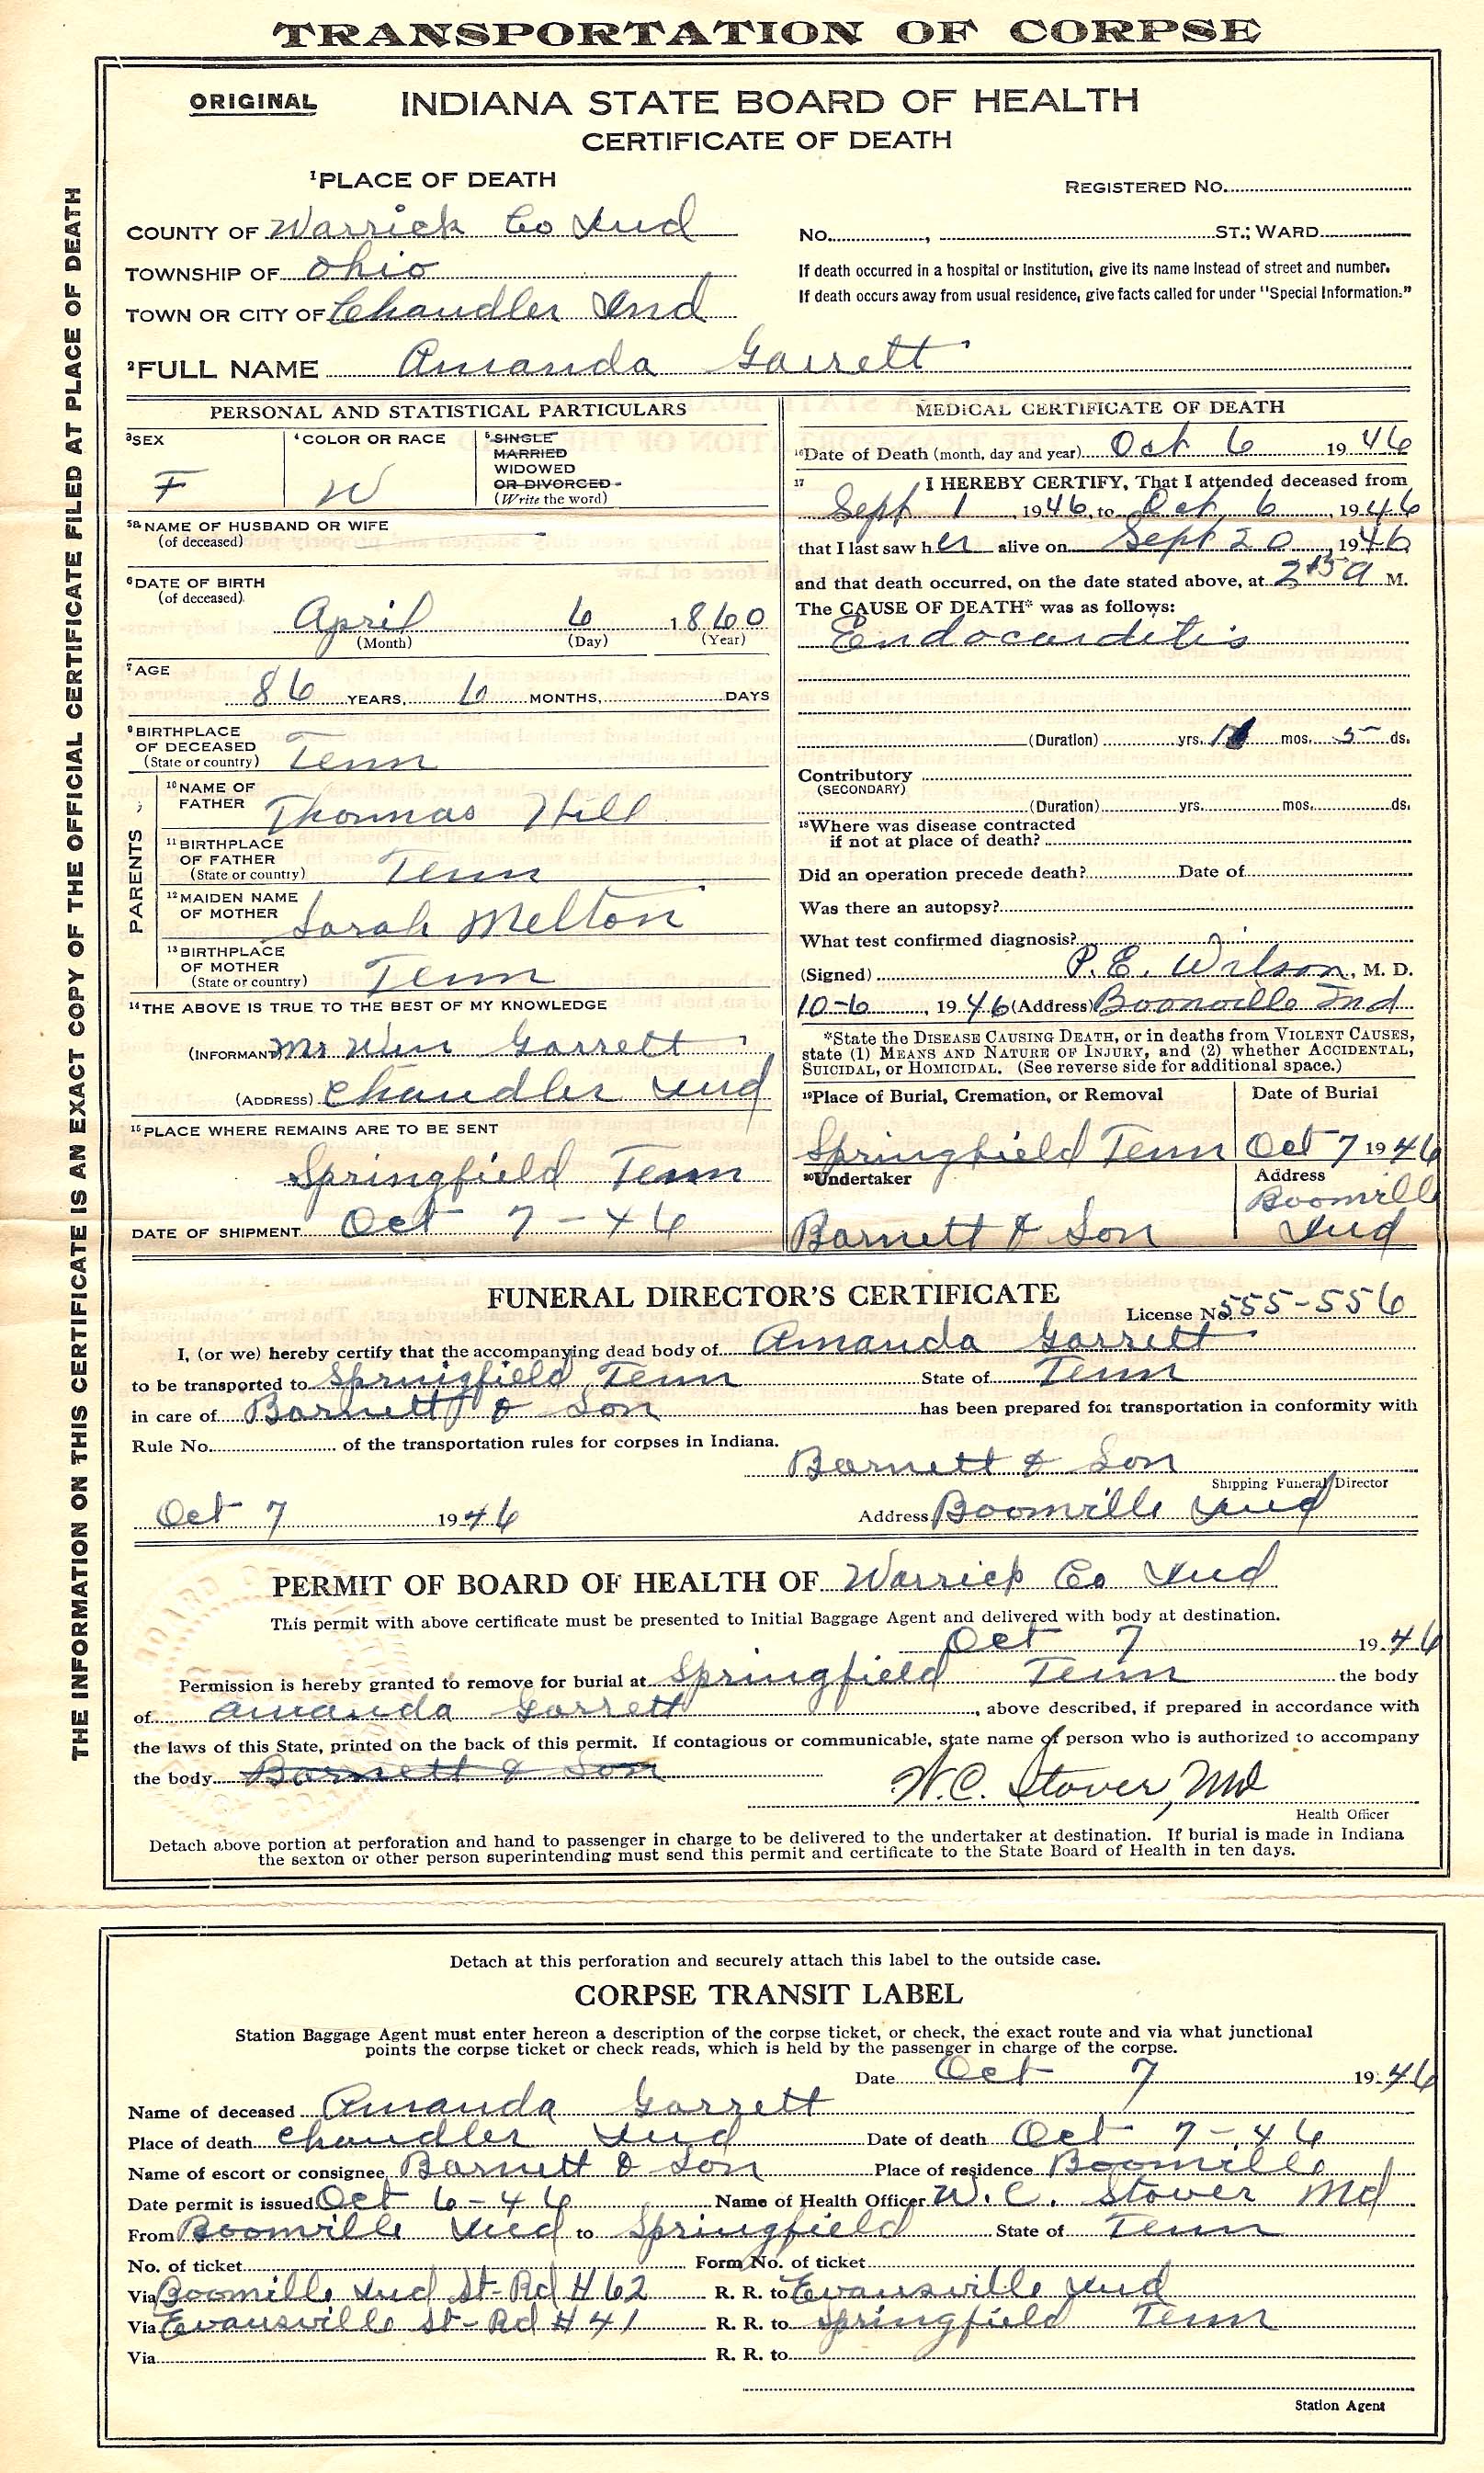 TRANSPORTATION OF CORPSE
ORIGINAL INDIANA STATE BOARD OF HEALTH
CERTIFICATE OF DEATH
THE INFORMATION ON THIS CERTIFICATE IS AN EXACT COPY OF THE OFFICIAL CERTIFICATE FILED AT PLACE OF DEATH
1 PLACE OF DEATH
REGISTERED NO.
COUNTY OF Warrick Co Ind
NO. , ST.; WARD
TOWNSHIP OF Ohio
If death occurred in a hospital or institution, give its name instead of street and number.
If death occurs away from usual residence, give facts called for under "Special Information."
TOWN OR CITY OF Chandler Ind
2 FULL NAME Amanda Garrett
PERSONAL AND STATISTICAL PARTICULARS
3 SEX
F
4 COLOR OR RACE
W
5 SINGLE
MARRIED
WIDOWED
OR DIVORCED
(Write the word)
5a NAME OF HUSBAND OR WIFE
(of deceased)
6 DATE OF BIRTH
(of deceased)
April 6 1860
(Month) (Day) (Year)
7 AGE
86 YEARS, 6 MONTHS, DAYS
9 BIRTHPLACE
OF DECEASED
(State or country) Tenn
PARENTS
10 NAME OF
FATHER Thomas Hill
11 BIRTHPLACE
OF FATHER
(State or country) Tenn
12 MAIDEN NAME
OF MOTHER Sarah Melton
13 BIRTHPLACE
OF MOTHER
(State or country) Tenn
14 THE ABOVE IS TRUE TO THE BEST OF MY KNOWLEDGE
(INFORMANT) Mr Wm Garrett
(ADDRESS) Chandler Ind
15 PLACE WHERE REMAINS ARE TO BE SENT
Springfield Tenn
DATE OF SHIPMENT Oct 7-46
MEDICAL CERTIFICATE OF DEATH
16 Date of Death (month, day and year) Oct 6 1946
17 I HEREBY CERTIFY, That I attended deceased from
Sept 1, 1946, to Oct 6, 1946
that I last saw her alive on Sept 20, 1946
and that death occurred, on the date stated above, at A M.
The CAUSE OF DEATH* was as follows:
Endocarditis
(Duration) yrs. mos. 5 ds.
Contributory
(SECONDARY)
(Duration) yrs. mos. ds.
18 Where was disease contracted
if not at place of death?
Did an operation precede death? Date of
Was there an autopsy?
What test confirmed diagnosis?
(Signed) P. E. Wilson, M. D.
10-6, 1946 (Address) Boonville Ind
*State the DISEASE CAUSING DEATH, or in deaths from VIOLENT CAUSES,
state (1) MEANS AND NATURE OF INJURY, and (2) whether ACCIDENTAL,
SUICIDAL, or HOMICIDAL. (See reverse side for additional space.)
19 Place of Burial, Cremation, or Removal
Springfield Tenn
Date of Burial
Oct 7 1946
20 Undertaker
Barnett & Son
Address
Boonville
Ind
FUNERAL DIRECTOR'S CERTIFICATE
License No 555-556
I, (or we) hereby certify that the accompanying dead body of Amanda Garrett
to be transported to Springfield Tenn State of Tenn
in care of Barnett & Son has been prepared for transportation in conformity with
Rule No. of the transportation rules for corpses in Indiana.
Barnett & Son
Shipping Funeral Director
Oct 7 1946 Address Boonville Ind
PERMIT OF BOARD OF HEALTH OF Warrick Co Ind
This permit with above certificate must be presented to Initial Baggage Agent and delivered with body at destination.
Oct 7 1946
Permission is hereby granted to remove for burial at Springfield Tenn the body
of Amanda Garrett, above described, if prepared in accordance with
the laws of this State, printed on the back of this permit. If contagious or communicable, state name of person who is authorized to accompany
the body Barnett & Son
W.C. Stover, MD
Health Officer
Detach above portion at perforation and hand to passenger in charge to be delivered to the undertaker at destination. If burial is made in Indiana
the sexton or other person superintending must send this permit and certificate to the State Board of Health in ten days.
Detach at this perforation and securely attach this label to the outside case.
CORPSE TRANSIT LABEL
Station Baggage Agent must enter hereon a description of the corpse ticket, or check, the exact route and via what junctional
points the corpse ticket or check reads, which is held by the passenger in charge of the corpse.
Date Oct 7 1946
Name of deceased Amanda Garrett
Place of death Chandler Ind Date of death Oct 7-46
Name of escort or consignee Barnett & Son Place of residence Boonville
Date permit is issued Oct 6-46 Name of Health Officer W.C. Stover Md
From Boonville Ind to Springfield State of Tenn
No. of ticket Form No. of ticket
Via Boonville Ind St-Rd # 62 R. R. to Evansville Ind
Via Evansville St-Rd # 41 R. R. to Springfield Tenn
Via R. R. to
Station Agent